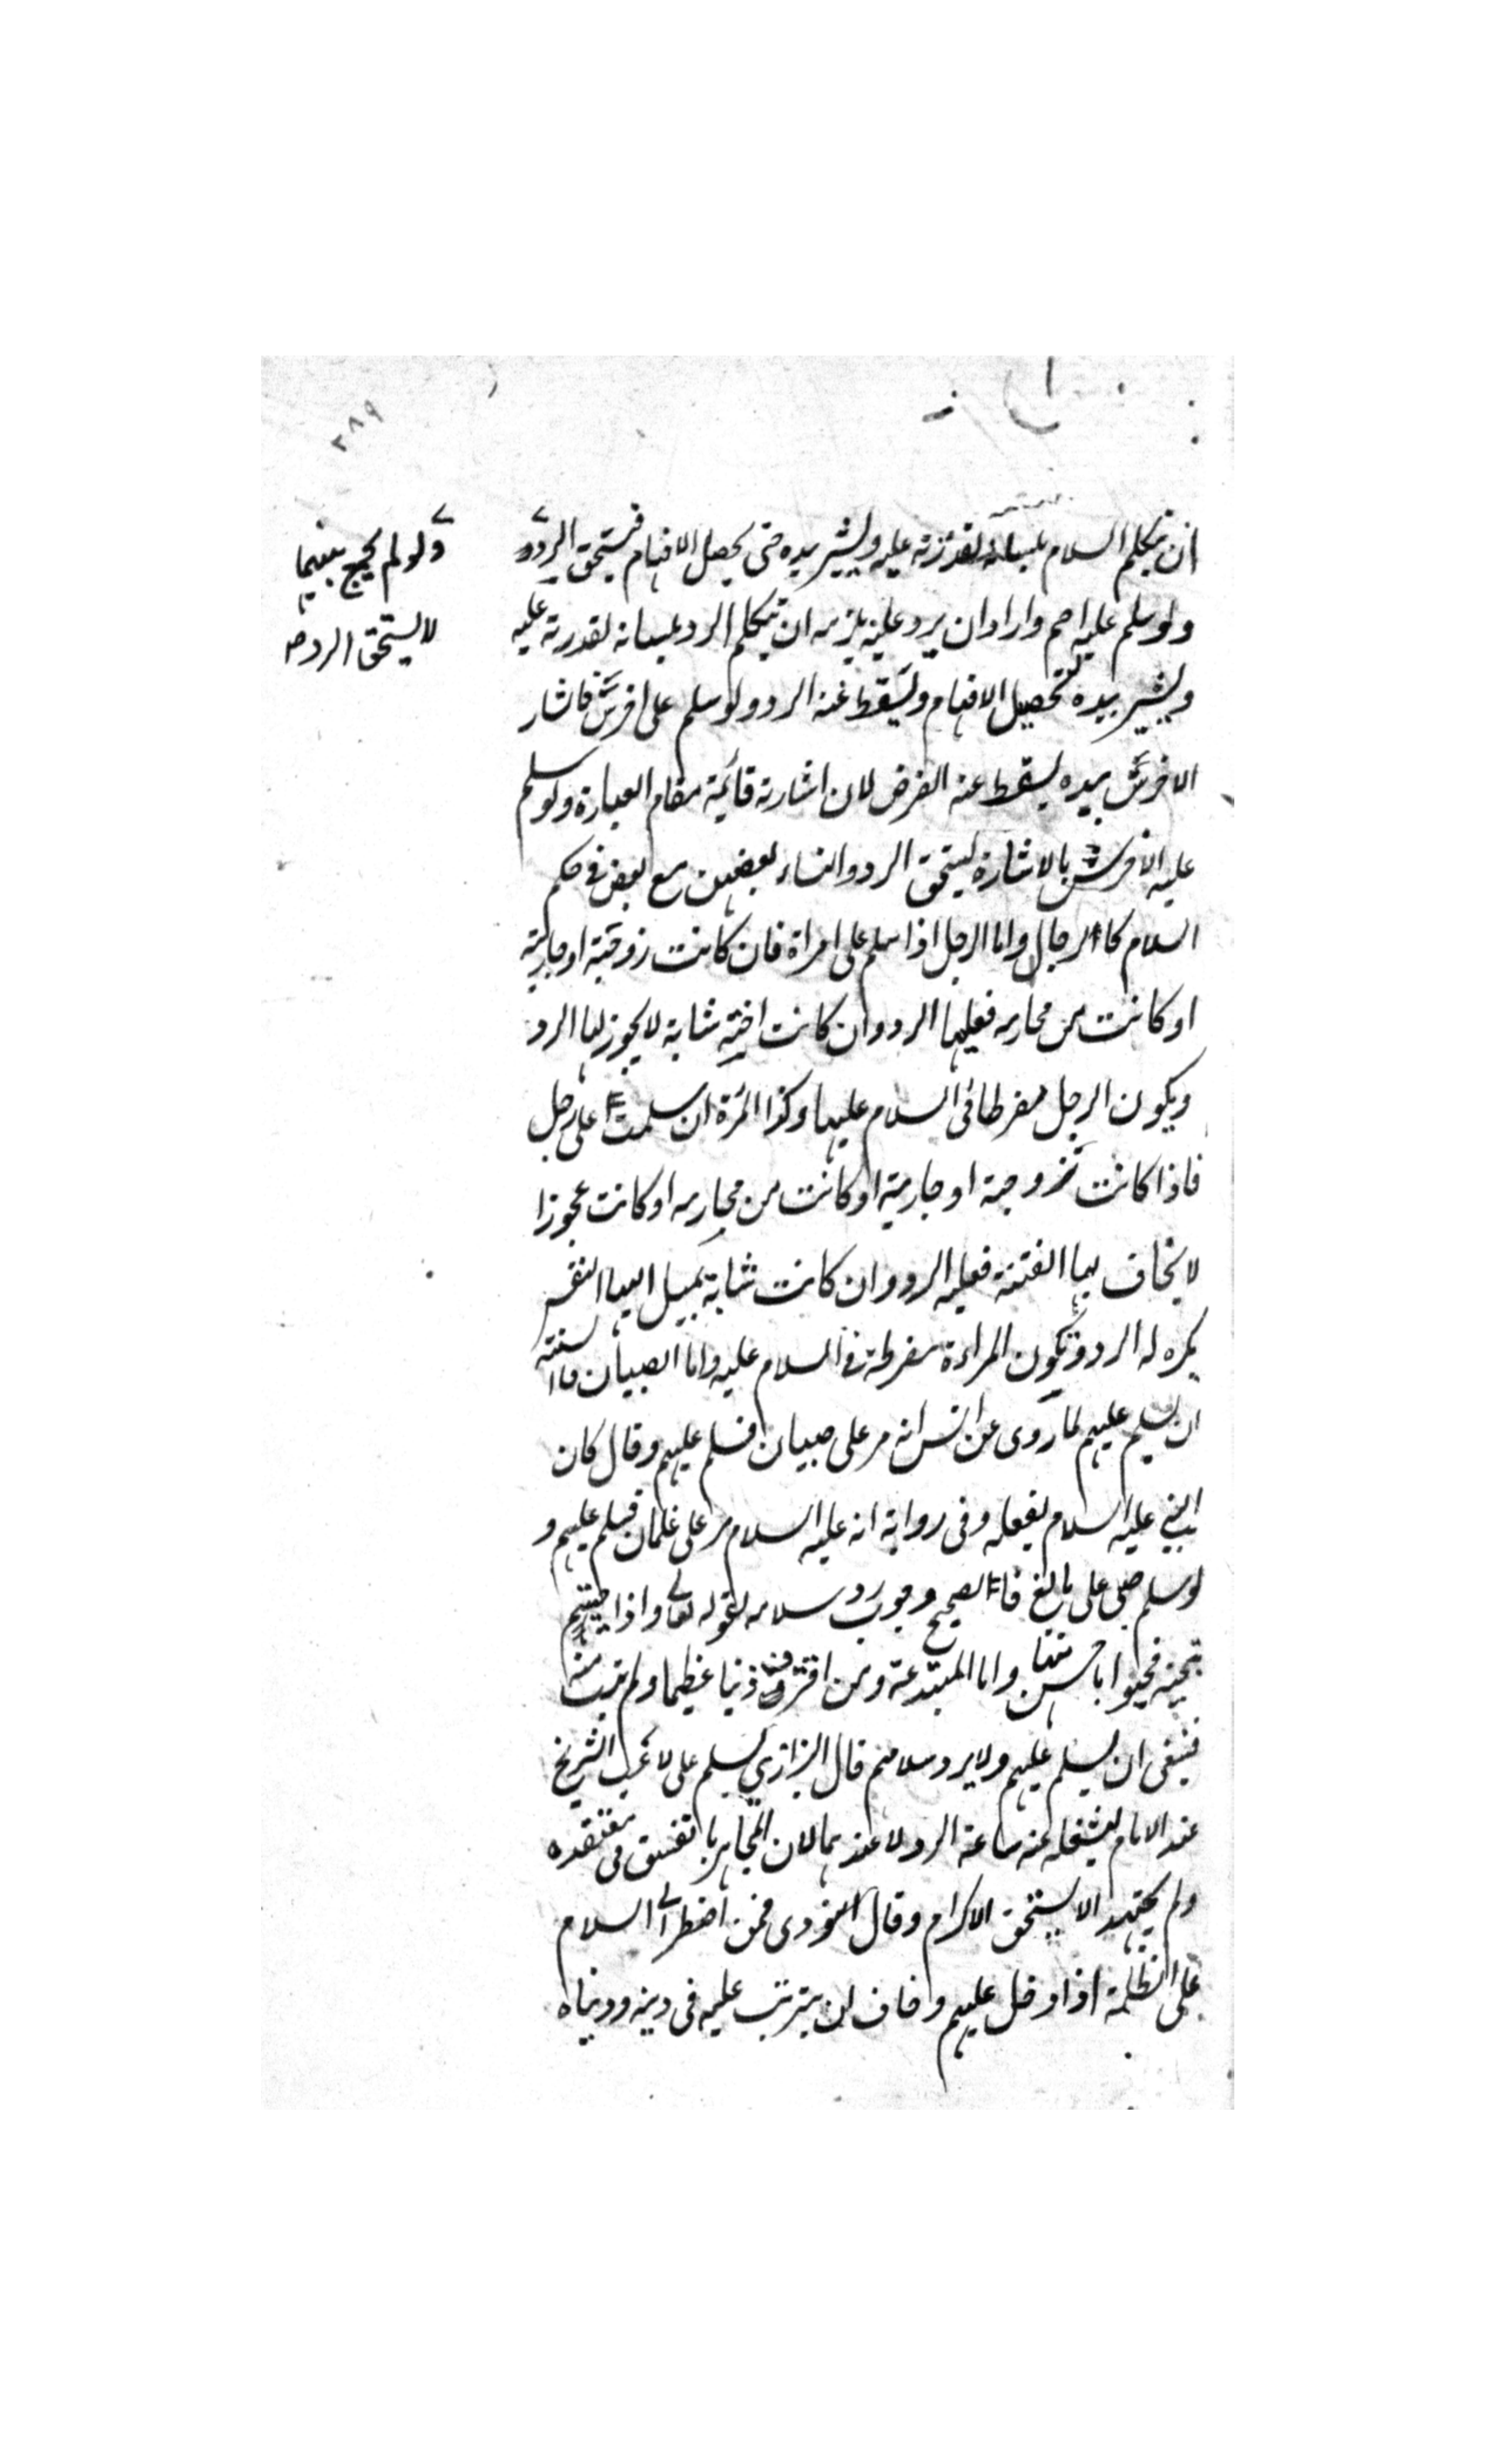 ٣٨٩
ان يتكلم السلام بلسانه لقدرته عليه ويشير بيده حتى يحصل الافهام فيستحق الرد
ولو لم يجمع بينهما
لا يستحق الرد صح
ولو سلم عليه اصم واراد ان يرد عليه يلزمه ان يتكلم الرد بلسانه لقدرته عليه
ويشير بيده لتحصيل الافهام ويسقط عنه الرد ولو سلم على اخرس فاشار
الاخرس بيده يسقط عنه الفرض لان اشارته قائمة مقام العبارة ولو سلم
عليه الاخرس بالاشارة يستحق الرد والنساء بعضهن مع بعض في حكم
السلام كالرجال واما الرجل اذا سلم على امراة فان كانت زوجته او جاريته
او كانت من محارمه فعليها الرد وان كانت اجنبية شابة لا يجوز لها الرد
ويكون الرجل مفرطا في السلام عليها وكذا المرة ان سلمت على رجل
فاذا كانت زوجية او جارية او كانت من محارمه او كانت عجوزا
لا يخاف بها الفتنة فعليه الرد وان كانت شابة يميل اليها النفس
يكره له الرد وتكون المراءة مفرطة في السلام عليه واما الصبيان فالسنة
ان يسلم عليهم لما روى عن انس انه مر على صبيان فسلم عليهم وقال كان
النبي عليه السلام يفعله وفي رواية انه عليه السلام مر على غلمان فسلم عليهم و
لو سلم صبي على بالغ فالصحيح وجوب رد سلامه لقوله تعالى واذا حييتم
بتحية فحيوا باحسن منها واما المبتدعة ومن اقترف ذنبا عظيما ولم يتب منه
فينبغي ان يسلم عليهم ولا يرد سلامهم قال البزازي يسلم على لاعب الشطرنج
عند الامام ليشغله عنه ساعة الرد لا عندهما لان المجاهر بالفسق في معتقده
ولم يجتهد لا يستحق الاكرام وقال النووى فمن اضطر الى السلام
على الظلمة اذا دخل عليهم وخاف ان يترتب عليه في دينه ودنياه